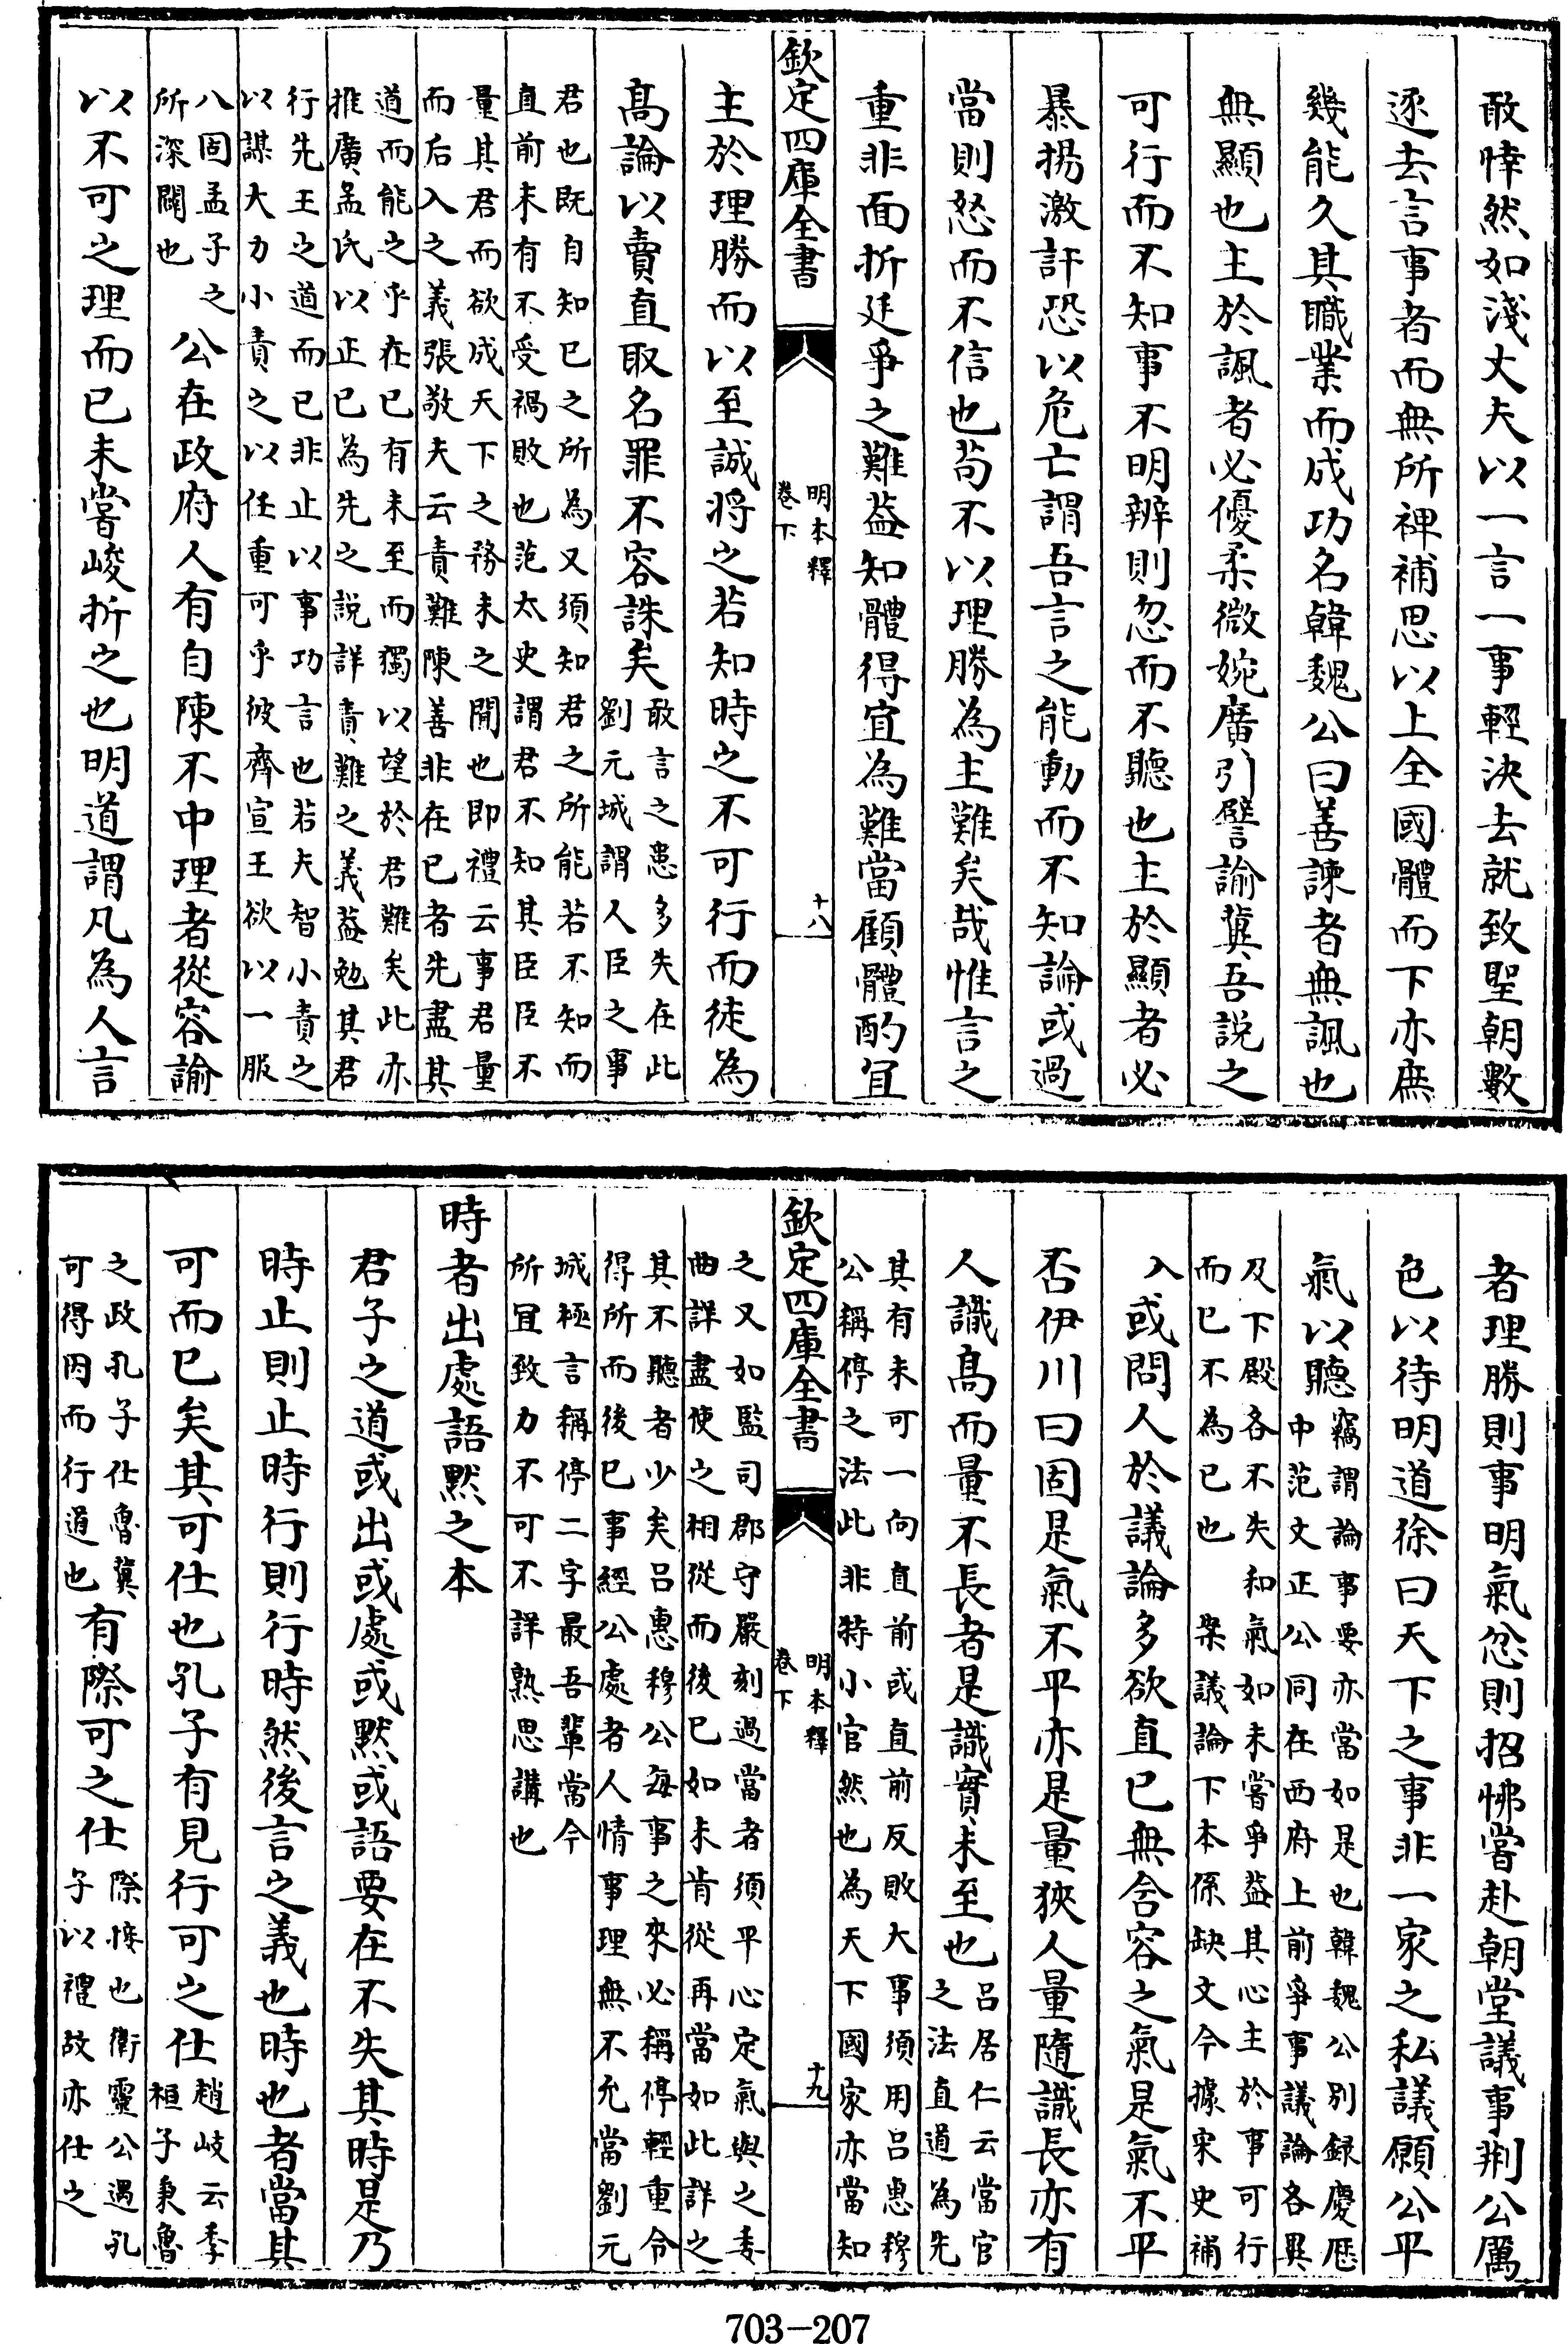 敢悻然如淺丈夫以一言一事輕決去就致聖朝數
逐去言事者而無所裨補思以上全國體而下亦庶
幾能久其職業而成功名韓魏公曰善諫者無諷也
無顯也主於諷者必優柔微婉廣引譬諭冀吾説之
可行而不知事不明辨則忽而不聽也主於顯者必
暴揚激訐恐以危亡謂吾言之能動而不知論或過
當則怒而不信也苟不以理勝為主難矣哉惟言之
重非面折廷爭之難益知體得宜為難當顧體酌宜
欽定四庫全書
明本釋
卷下
十八
主於理勝而以至誠將之若知時之不可行而徒為
高論以賣直取名罪不容誅矣
敢言之患多失在此
劉元城謂人臣之事
君也既自知已之所為又須知君之所能若不知而
直前未有不受禍敗也范太史謂君不知其臣臣不
量其君而欲成天下之務未之聞也即禮云事君量
而后入之義張敬夫云責難陳善非在已者先盡其
道而能之乎在已有未至而獨以望於君難矣此亦
推廣孟氏以正已為先之説詳責難之義益勉其君
行先王之道而已非止以事功言也若夫智小責之
以謀大力小責之以任重可乎彼齊宣王欲以一服
八固孟子之
所深闢也
公在政府人有自陳不中理者從容諭
以不可之理而已未嘗峻折之也明道謂凡為人言
者理勝則事明氣忿則招怫嘗赴朝堂議事荆公厲
色以待明道徐曰天下之事非一家之私議願公平
氣以聽
竊謂論事要亦當如是也韓魏公別録慶厯
中范文正公同在西府上前爭事議論各異
及下殿各不失和氣如未嘗爭益其心主於事可行
而已不為已也　案議論下本係缺文今據宋史補
入或問人於議論多欲直已無含容之氣是氣不平
否伊川曰固是氣不平亦是量狹人量隨識長亦有
人識高而量不長者是識實未至也
吕居仁云當官
之法直道為先
其有未可一向直前或直前反敗大事須用吕惠穆
公稱停之法此非特小官然也為天下國家亦當知
欽定四庫全書
明本釋
卷下
十九
之又如監司郡守嚴刻過當者須平心定氣與之委
曲詳盡使之相從而後已如未肯從再當如此詳之
其不聽者少矣吕惠穆公每事之來必稱停輕重令
得所而後已事經公處者人情事理無不允當劉元
城極言稱停二字最吾輩當今
所宜致力不可不詳熟思講也
時者出處語默之本
君子之道或出或處或默或語要在不失其時是乃
時止則止時行則行時然後言之義也時也者當其
可而已矣其可仕也孔子有見行可之仕
趙岐云季
桓子秉魯
之政孔子仕魯冀
可得因而行道也
有際可之仕
際接也衛靈公遇孔
子以禮故亦仕之
703-207